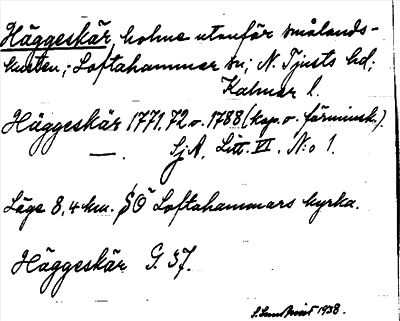 Häggeskär holme utanför Smålands-
kusten; Loftahammar sn; N. Tjusts hd;
Kalmar l.
Häggeskär 1771.72 o. 1788 (kap. o. färminsk.).
— . SjA. Litt. VI. N:o 1.
Läge 8,4 km. SÖ Loftahammars kyrka.
Häggeskär G. 37.
1938.